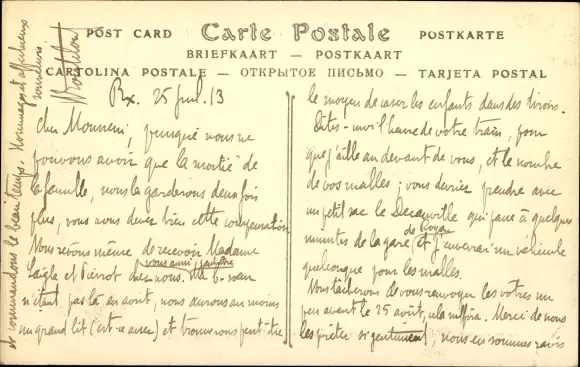 POST CARD Carte Postale POSTKARTE
BRIEFKAART — POSTKAART
CARTOLINA POSTALE — ОТКРЫТОЕ ПИСЬМО — TARJETA POSTAL
Rx. 25 juil. 13
cher Monsieur, puisque nous ne
pouvons avoir que la moitié de
la famille, nous la garderons deux fois
plus, vous nous devez bien cette compensation
Nous rêvons même de recevoir Madame
Laigle et Pierrot chez nous. vous aussi, peut-être Ma b. sœur
n'étant pas là en août, nous aurons au moins
un grand lit (est-ce assez) et trouverons peut-être
le moyen de caser les enfants dans des tiroirs.
Dites-moi l'heure de votre train, pour
que j'aille au devant de vous, et le nombre
de vos malles ; vous devriez prendre avec
un petit sac le Decauville qui passe à quelques
minutes de la gare de Royan et j'enverrai un véhicule
quelconque pour les malles.
Nous tâcherons de vous renvoyer les vôtres un
peu avant le 25 août, cela suffira. Merci de nous
les prêter si gentiment, nous en sommes ravis
et commandons le beau temps. Hommages et affectueux
souvenirs